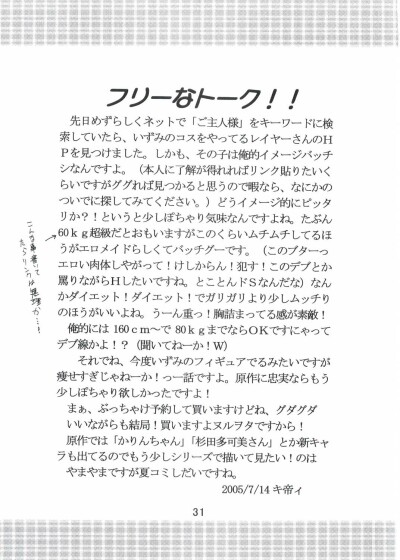 フリーなトーク！！
先日めずらしくネットで「ご主人様」をキーワードに検
索していたら、いずみのコスをやってるレイヤーさんのH
Pを見つけました。しかも、その子は俺的イメージバッチ
シなんですよ。（本人に了解が得れればリンク貼りたいく
らいですがググれば見つかると思うので暇なら、なにかの
ついでに探してみてください。）どうイメージ的にピッタ
リか？！というと少しぽちゃり気味なんですよね。たぶん
60kg超級だとおもいますがこのくらいムチムチしてるほ
うがエロメイドらしくてバッチグーです。（このブターっ
エロい肉体しやがって！けしからん！犯す！このデブとか
罵りながらHしたいですね。とことんドSなんだな）なん
かダイエット！ダイエット！でガリガリより少しムッちり
のほうがいいよね。うーん重っ！胸詰まってる感が素敵！
俺的には160cm～で80kgまでならOKですにゃって
デブ線かよ！？（聞いてねーか！W）
それでね、今度いずみのフィギュアでるみたいですが
痩せすぎじゃねーか！っ一話ですよ。原作に忠実ならもう
少しぽちゃり欲しかったですよ！
まぁ、ぶっちゃけ予約して買いますけどね、グダグダ
いいながらも結局！買いますよヌルヲタですから！
原作では「かりんちゃん」「杉田多可美さん」とか新キャ
ラも出てるのでもう少しシリーズで描いて見たい！のは
やまやまですが夏コミしだいですね。
2005/7/14 キ帝ィ
31